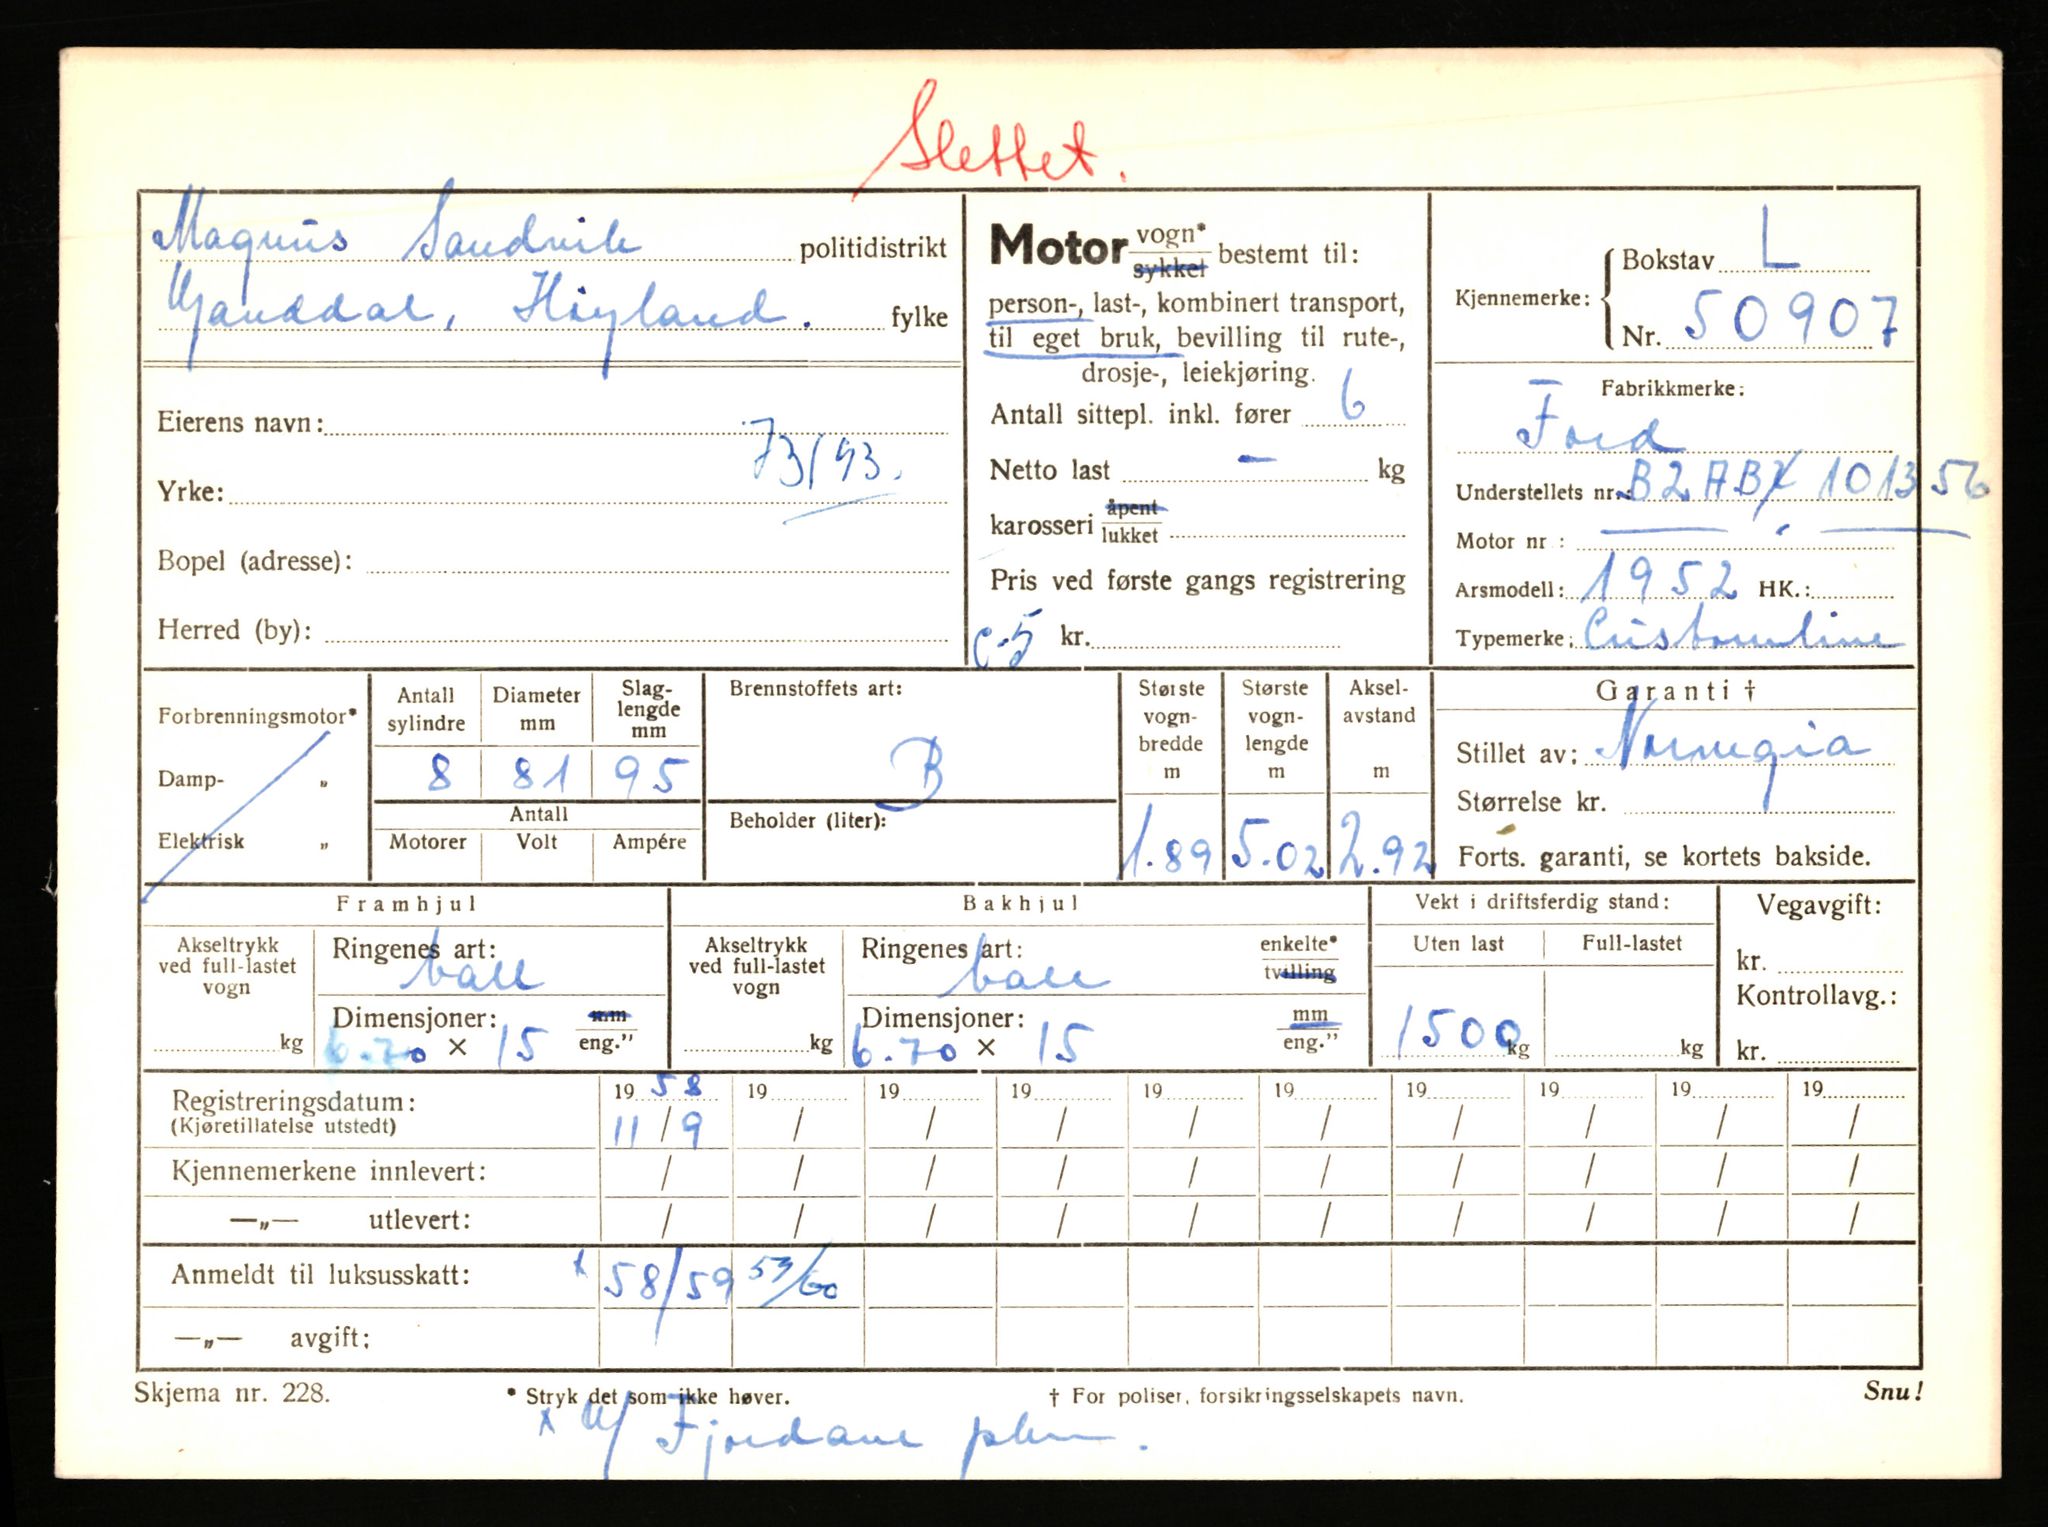 Slettet.
Magnus Sandvik politidistrikt
Ganddal, Høyland. fylke
Eierens navn:
73/93.
Yrke:
Bopel (adresse):
Herred (by):
Motor vogn* sykkel bestemt til:
person-, last-, kombinert transport,
til eget bruk, bevilling til rute-,
drosje-, leiekjøring.
Antall sittepl. inkl. fører 6
Netto last - kg
karosseri åpent lukket
Pris ved første gangs registrering
c-5 kr.
Kjennemerke: Bokstav L
Nr. 50907
Fabrikkmerke:
Ford
Understellets nr.: B2AB 101356
Motor nr :
Arsmodell: 1952 HK.:
Typemerke: Customline
Forbrenningsmotor*
Damp- „
Elektrisk „
Antall sylindre Diameter mm Slaglengde mm
8 81 95
Antall
Motorer Volt Ampére
Brennstoffets art:
B
Beholder (liter):
Største vognbredde m Største vognlengde m Akselavstand m
1.89 5.02 2.92
Garanti †
Stillet av: Norvegia
Størrelse kr.
Forts. garanti, se kortets bakside.
Framhjul
Akseltrykk ved full-lastet vogn kg
Ringenes art: ball
Dimensjoner: mm eng."
6.70 × 15
Bakhjul
Akseltrykk ved full-lastet vogn kg
Ringenes art: ball enkelte* tvilling
Dimensjoner: mm eng."
6.70 × 15
Vekt i driftsferdig stand:
Uten last Full-lastet
1500 kg kg
Vegavgift:
kr.
Kontrollavg.:
kr.
Registreringsdatum: 19 58 19 19 19 19 19 19 19 19 19
(Kjøretillatelse utstedt) 11/9 / / / / / / / / /
Kjennemerkene innlevert: / / / / / / / / / /
—„— utlevert: / / / / / / / / / /
Anmeldt til luksusskatt: x 58/59 59/60
—„— avgift:
Skjema nr. 228. * Stryk det som ikke høver. † For poliser, forsikringsselskapets navn. Snu!
x Fjordane